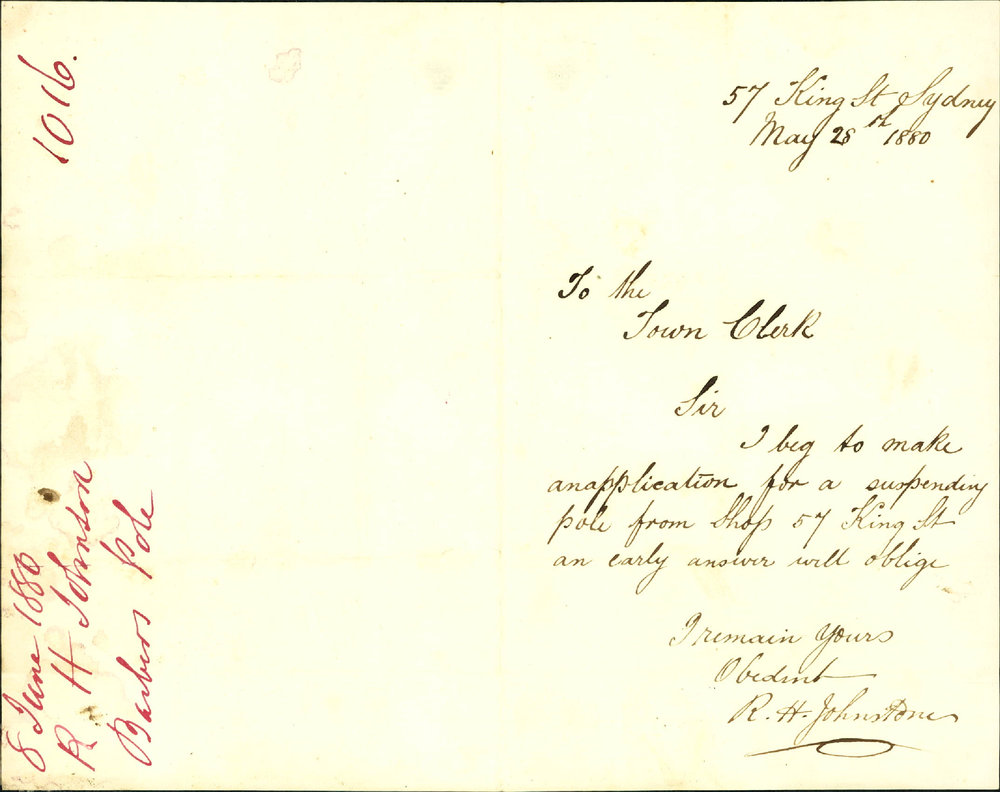 57 King St Sydney
May 28th 1880
To the
Town Clerk
Sir
I beg to make
anapplication for a suspending
pole from Shop 57 King St
an early answer will oblige
I remain Yours
Obedint
R. H. Johnstone
1016.
8 June 1880
R H Johnson
Barbers Pole